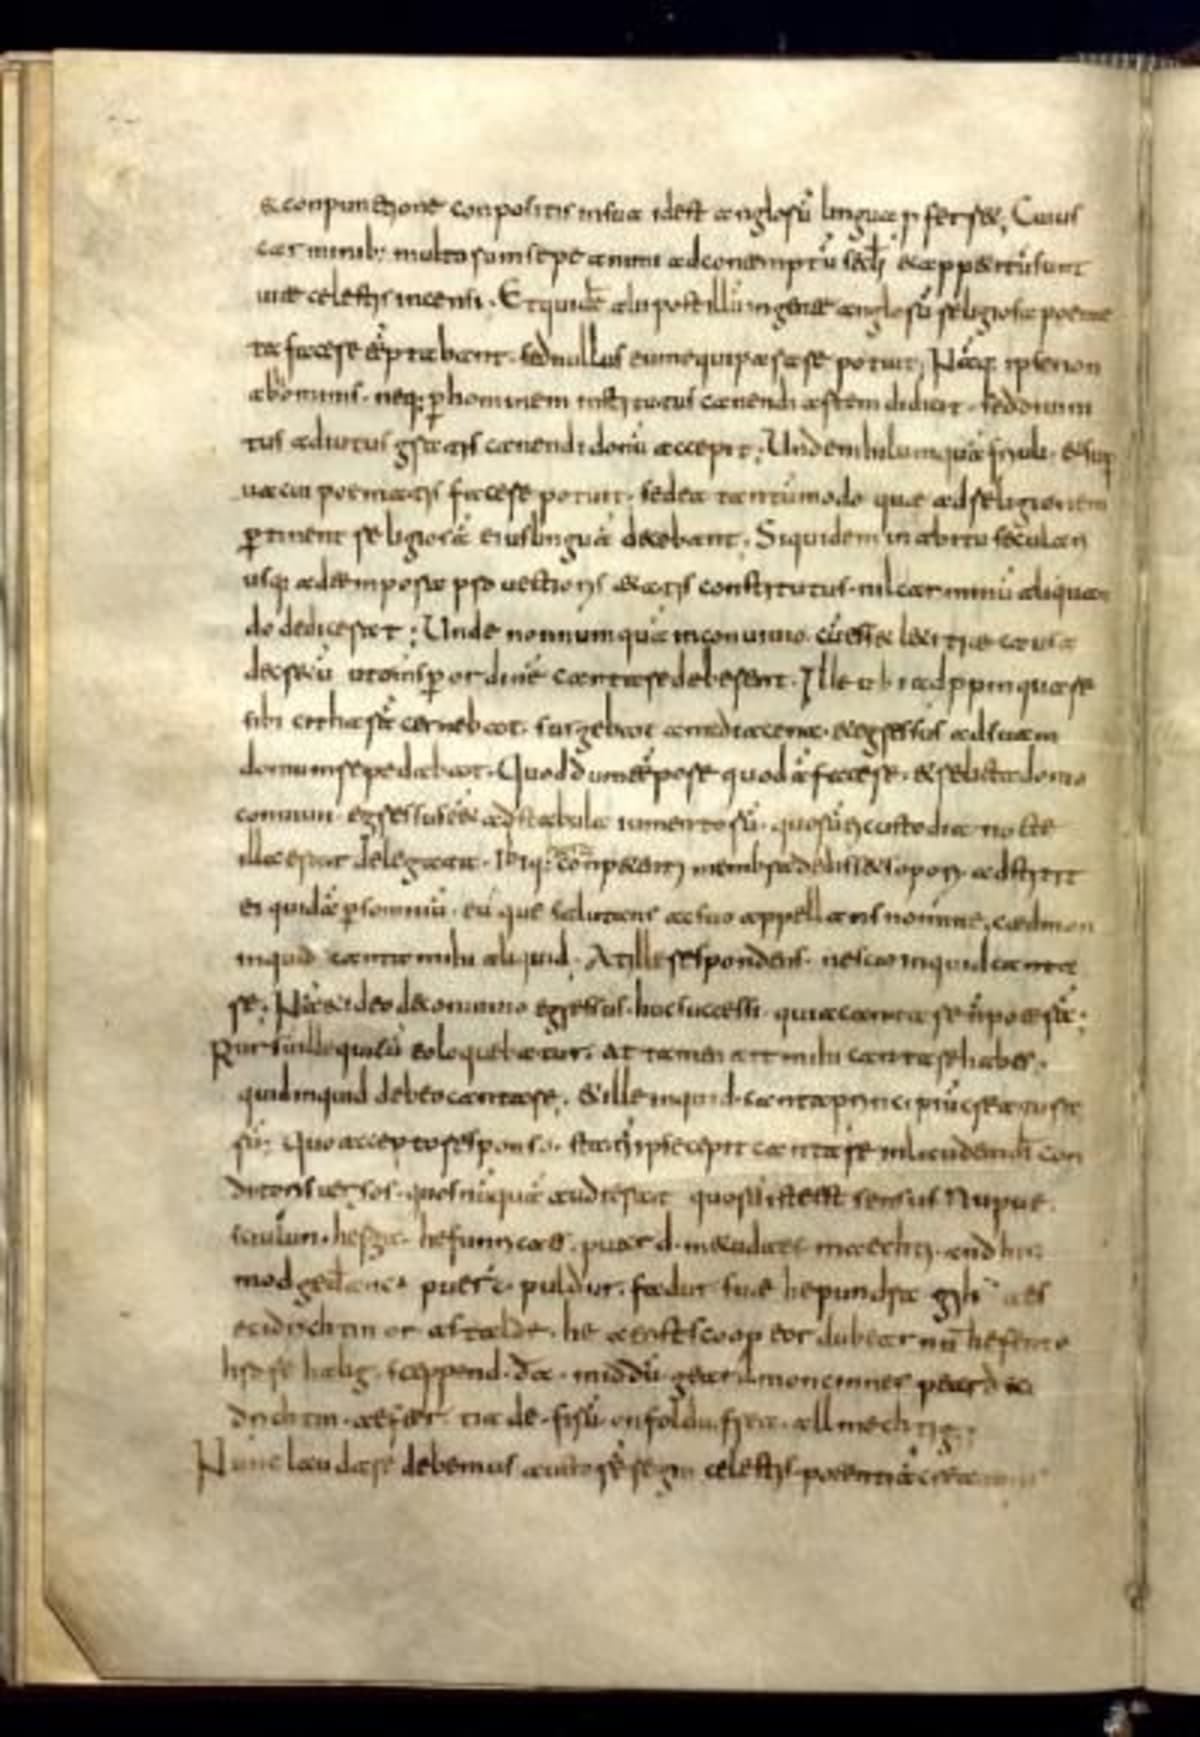 & conpunctione conpositis in sua id est anglorū lingua pferr&; Cuius
carminib; multorum sepe animi ad contemptū scli & app&itū sunt
uitae celestis incensi. Et quidē alii post illū in gente anglorū religiosa poema
ta facere tēptabant. sed nullus eum equiparare potuit; Nāq; ipse non
ab hominib. neq; p hominem institutus canendi artem didicit. sed diuini
tus adiutus gratis canendi donū accepit; Unde nihil umquā friuoli. & sup
uacui poematis facere potuit. sed ea tantūmodo quae ad religionem
ptinent religiosā eius linguā decebant. Siquidem in abitu seculari
usq; ad tempora pro uectioris &atis constitutus. nil carminū aliquan
do dedicerat; Unde nonnumquā in conuiuio. cū ess& l&itiae causa
decr&ū ut oms p ordinē cantare deberent. Ille ubi adppinquare
sibi citharā cernebat. surgebat a media cena. & egressus ad suam
domum repedabat. Quod dum tēpore quodā facer&. & relicta domo
conuiui egressus ēet ad stabula iumentorū. quorū ei custodia nocte
illa erat delegata. Ibiq; conpetenti membra dediss& sopori. adstitit
ei quidā p somniū. eū que salutans ac suo appellans nomine. caedmon
inquid canta mihi aliquid. At ille respondens. nescio inquid canta
re; Nā & ideo de conuiuio egressus. huc secessi. quia cantare ñ poterā;
Rursū ille qui cū eo loquebatur. At tamen ait mihi cantare habes.
quid inquid debeo cantare. & ille inquid. canta principiū creatura
rū; Quo accepto responso. statī ipse cepit cantare in laudem dī con
ditoris uersos. quos nūquā audierat quorū iste est sensus Nu pue
sciulun. herga. hefunricaes. puard. metudaes maechti. and his
modgedanc. puerc. puldur. fadur suae he pundra gih aes
eci drichtin or astalde. he aerist scoop eor du bearnū hefento
hrofe halig. sceppend. da. middū. geard moncinnes peard eci
drichtin. aefter. tia de. firū. on foldu. frea. allmechtig;
Nunc laudare debemus auctorē regni celestis. potentiā creatoris